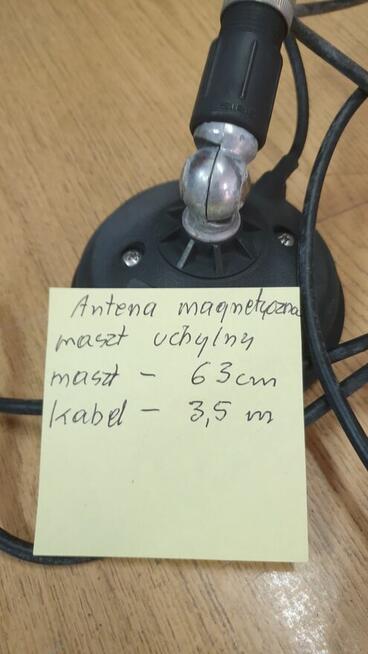 Antena magnetyczna
maszt uchylny
maszt - 63cm
kabel - 3,5 m